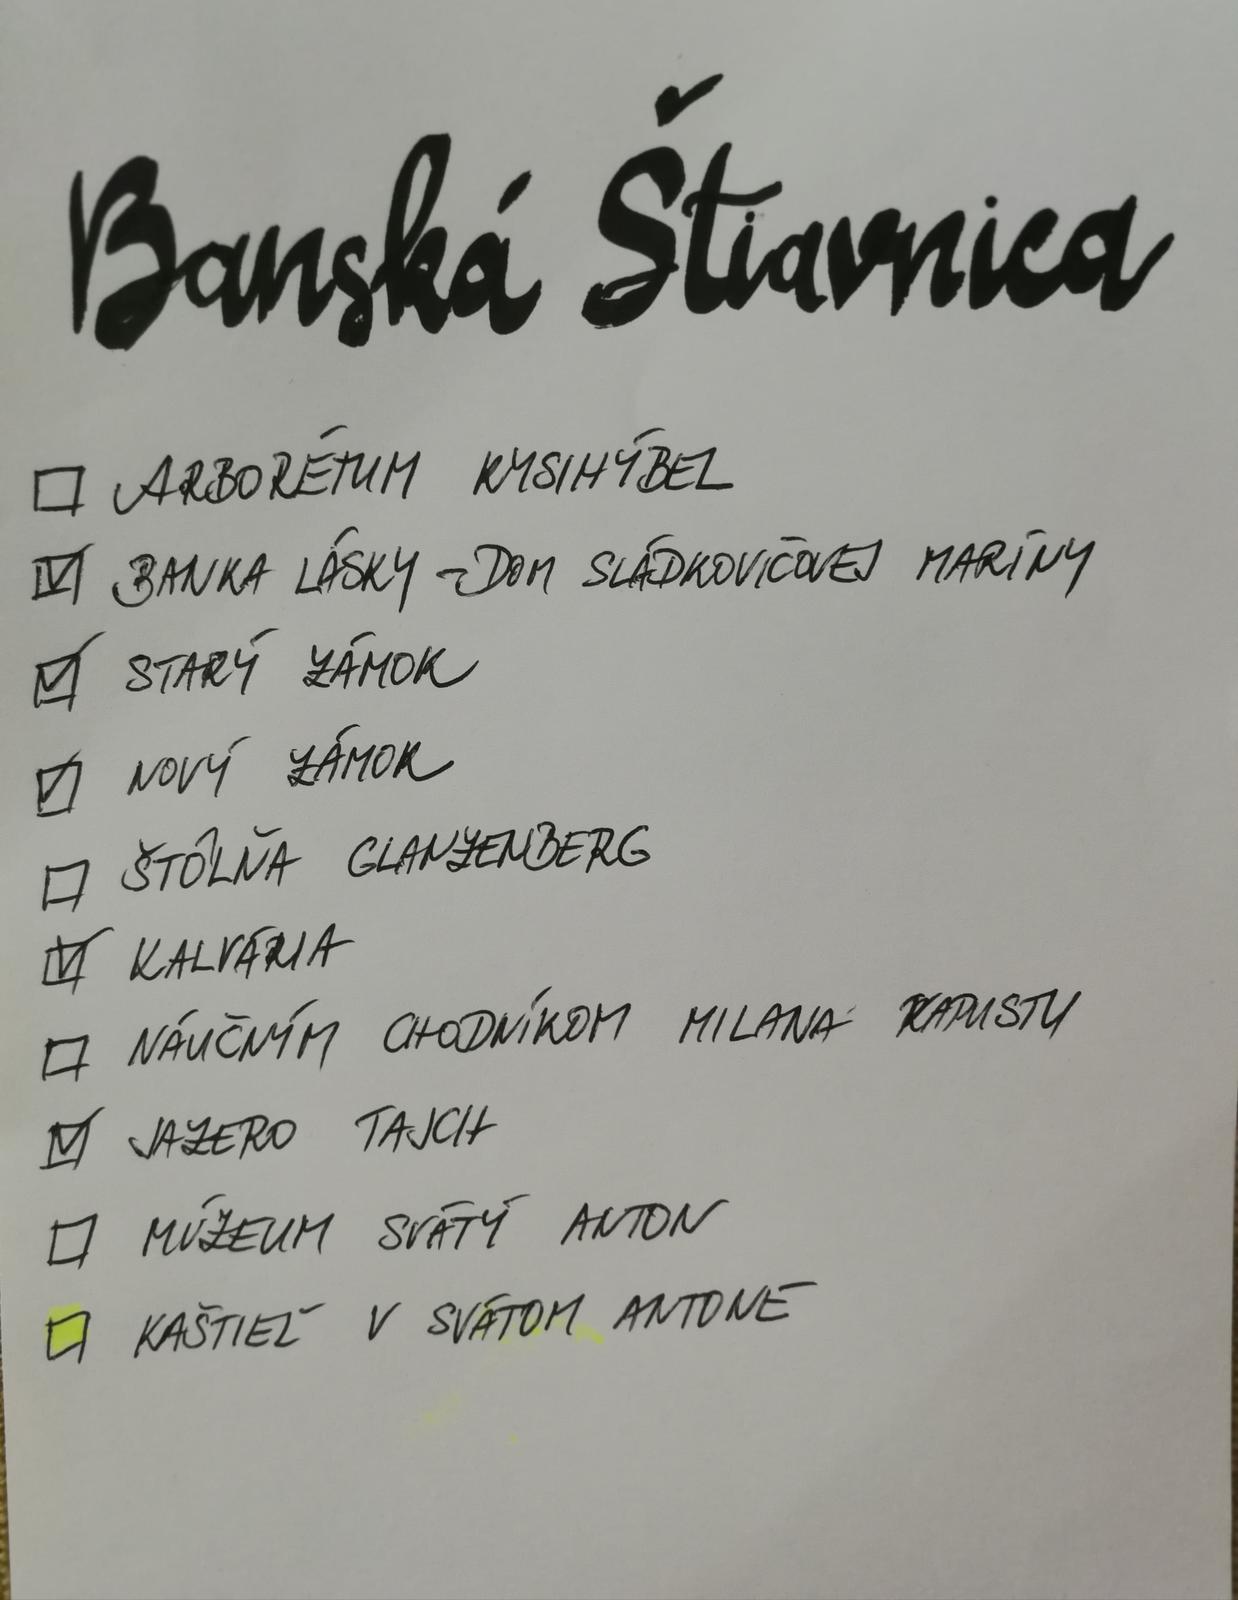 Banská Štiavnica
☐ ARBORÉTUM KYSIHÝBEL
☑ BANKA LÁSKY - DOM SLÁDKOVIČOVEJ MARÍNY
☑ STARÝ ZÁMOK
☑ NOVÝ ZÁMOK
☐ ŠTÔLŇA GLANZENBERG
☑ KALVÁRIA
☐ NÁUČNÝM CHODNÍKOM MILANA KAPUSTU
☑ JAZERO TAJCH
☐ MÚZEUM SVÄTÝ ANTON
☐ KAŠTIEĽ V SVÄTOM ANTONE